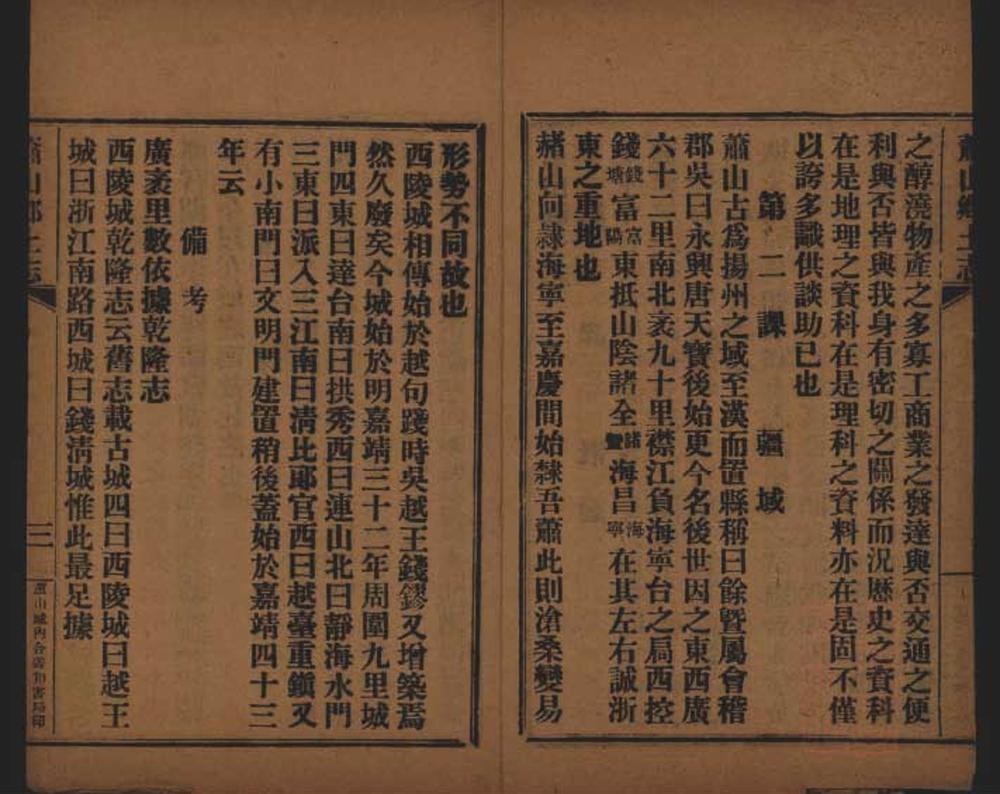 之醇澆物產之多寡工商業之發達與否交通之便
利與否皆與我身有密切之關係而況歷史之資科
在是地理之資科在是理科之資料亦在是固不僅
以誇多識供談助已也
第二課 疆域
蕭山古爲揚州之域至漢而置縣稱曰餘曁屬會稽
郡吳曰永興唐天寶後始更今名後世因之東西廣
六十二里南北袤九十里襟江負海寧台之扃西控
錢錢塘富富陽東抵山陰諸全諸曁海昌海寧在其左右誠浙
東之重地也
赭山向隷海寧至嘉慶間始隸吾蕭此則滄桑變易
形勢不同故也
西陵城相傳始於越句踐時吳越王錢鏐又增築焉
然久廢矣今城始於明嘉靖三十二年周圍九里城
門四東曰達台南曰拱秀西曰連山北曰靜海水門
三東曰派入三江南曰淸比郰官西曰越臺重鎭又
有小南門曰文明門建置稍後蓋始於嘉靖四十三
年云
備考
廣袤里數依據乾隆志
西陵城乾隆志云舊志載古城四曰西陵城曰越王
城曰浙江南路西城曰錢淸城惟此最足據
蕭山鄉土志
三
蕭山城內合義和書局印